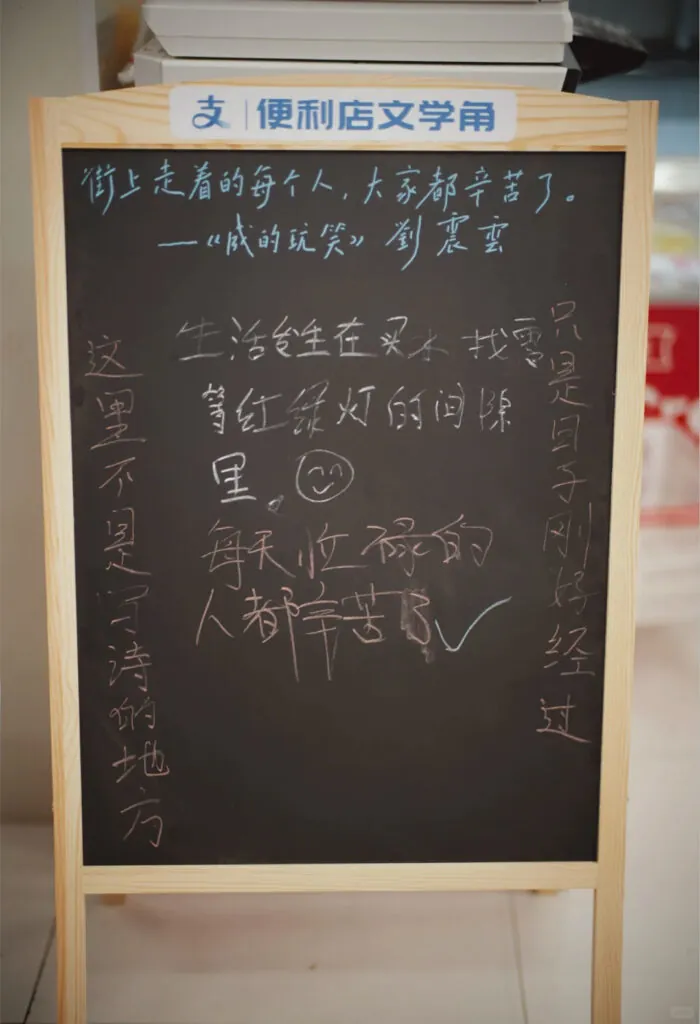 支 | 便利店文学角
街上走着的每个人，大家都辛苦了。
—《咸的玩笑》 劉震雲
生活发生在买水 找零
等红绿灯的间隙
里。
每天忙禄的
人都辛苦了
这里不是写诗的地方
只是日子刚好经过